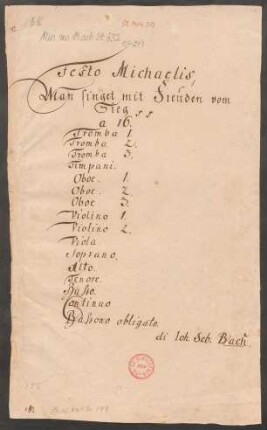 Festo Michaelis,
Man singet mit Freuden vom
Sieg pp
a 16.
Tromba 1.
Tromba 2.
Tromba 3.
Timpani.
Oboe. 1.
Oboe. 2.
Oboe 3.
Violino 1.
Violino 2.
Viola.
Soprano.
Alto.
Tenore.
Basso.
Continuo
Bassono obligato.
di Ioh. Seb. Bach.